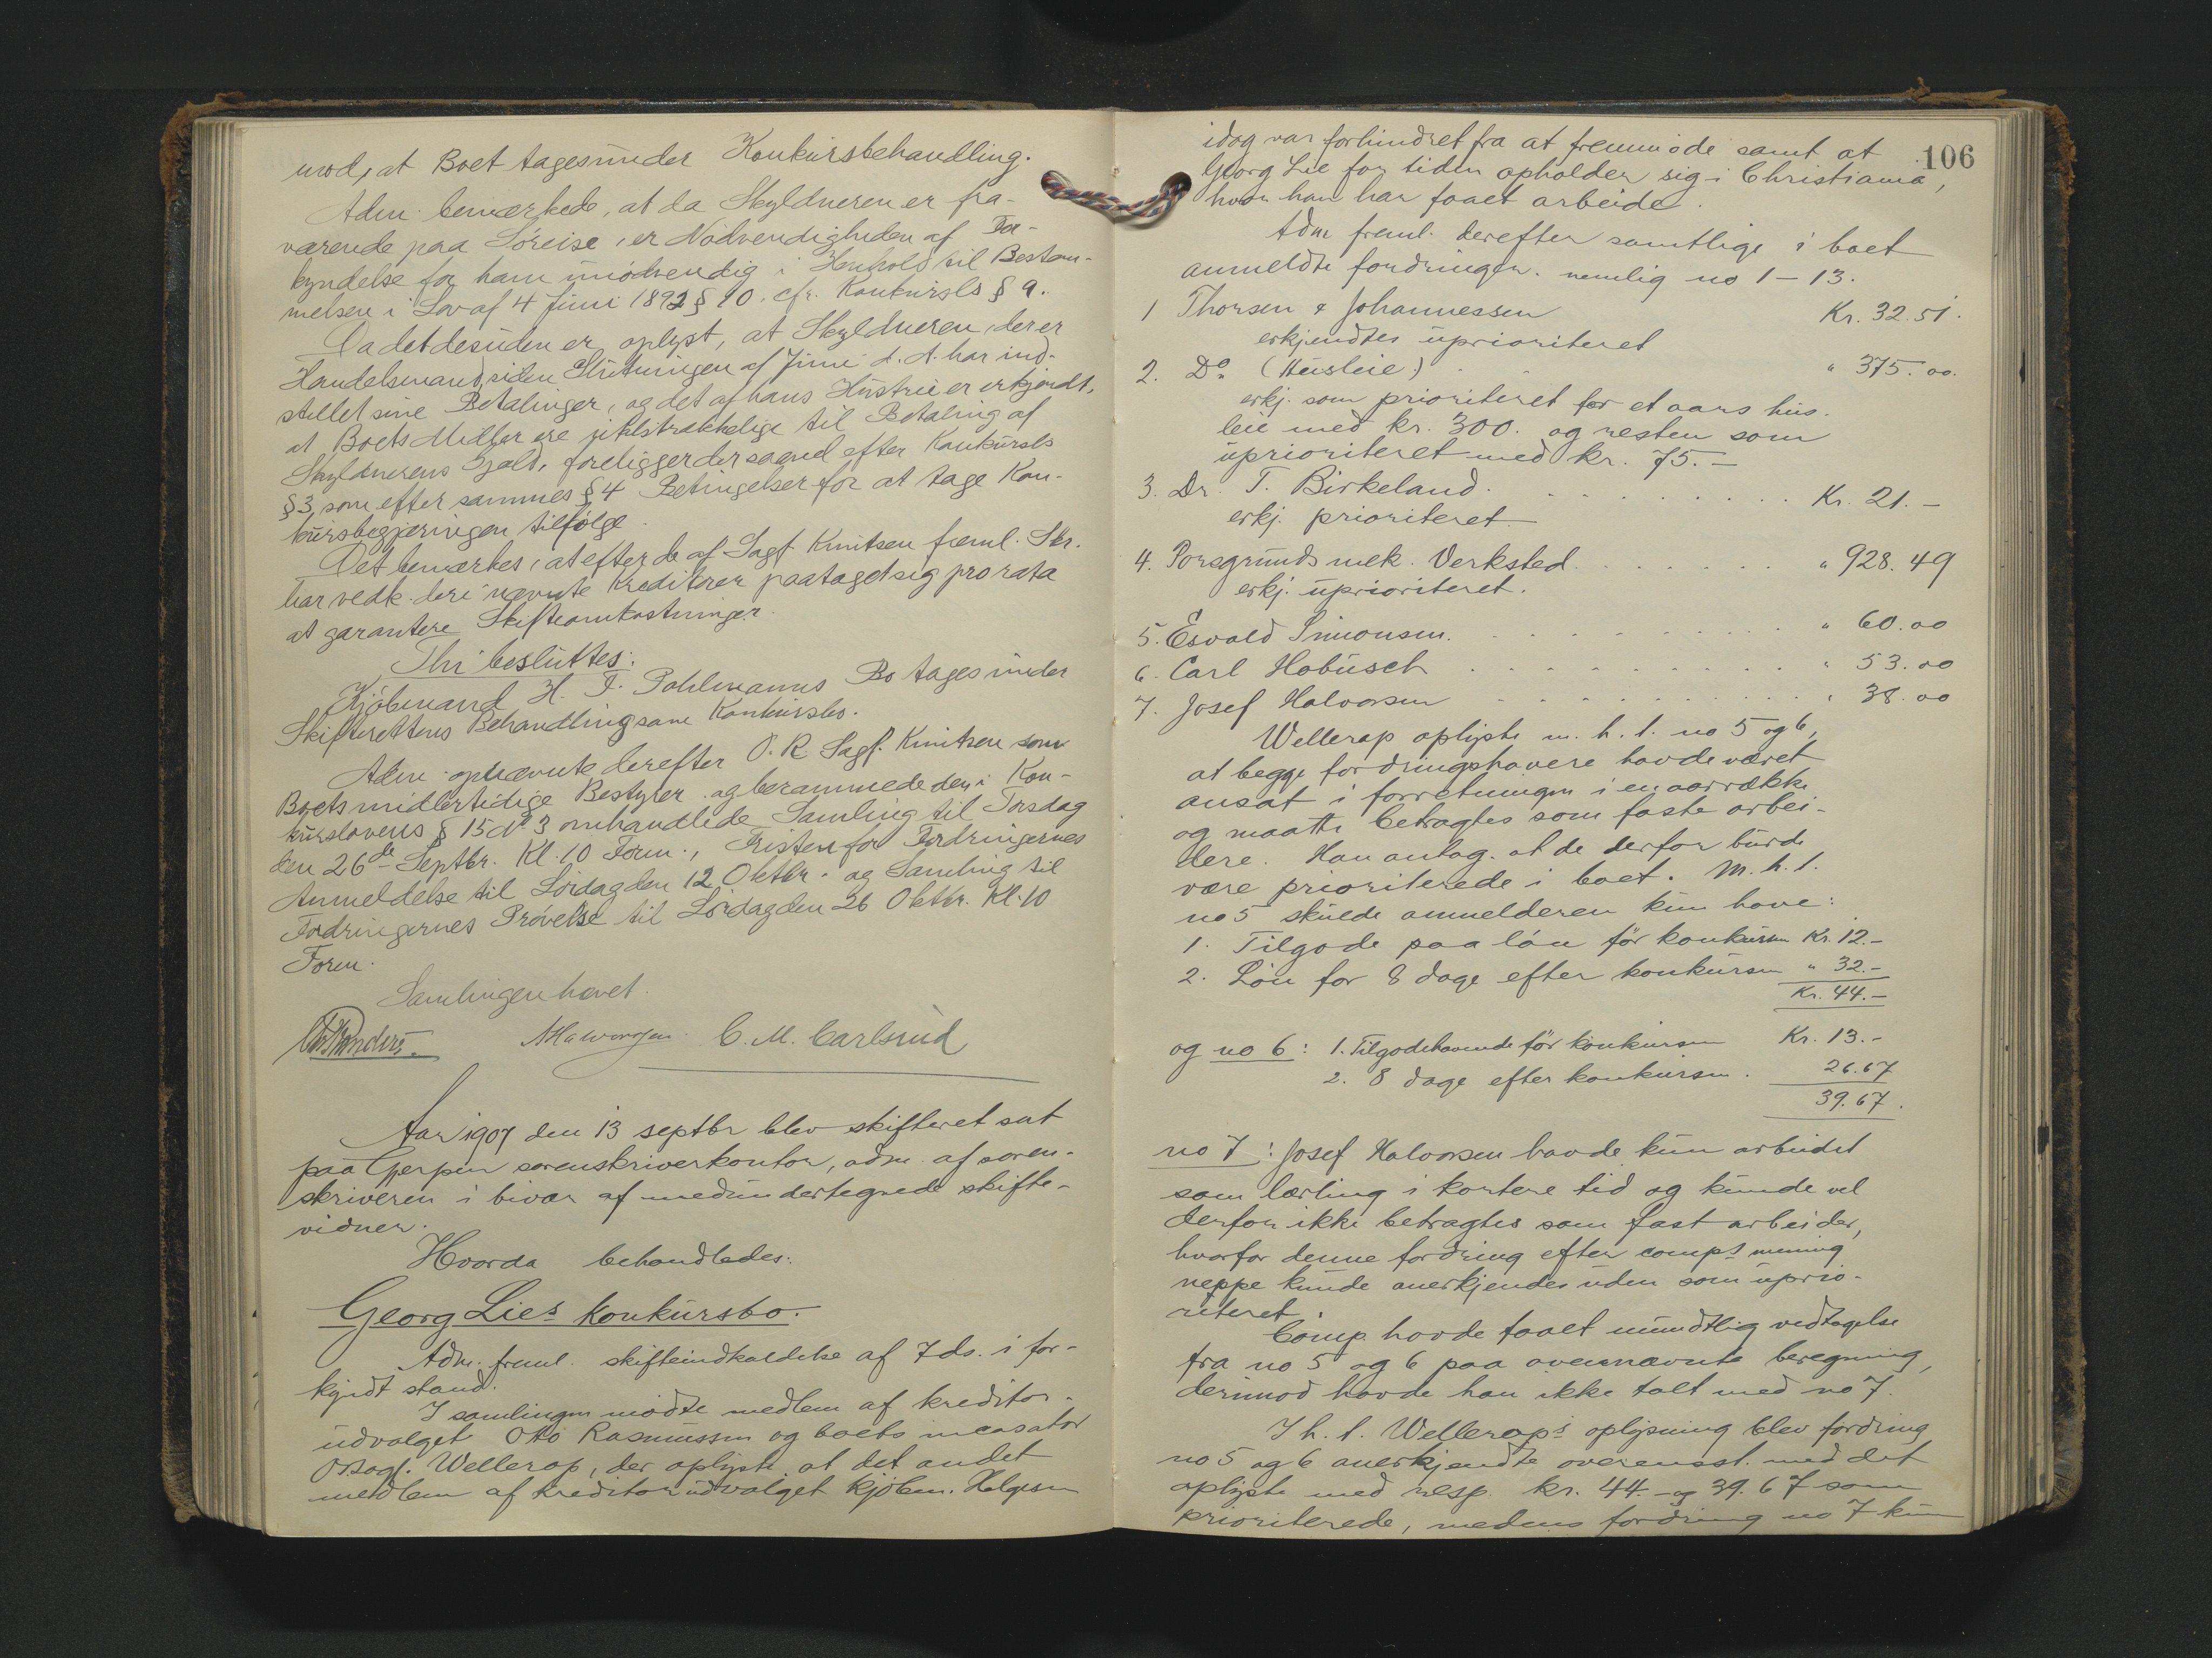 mod, at Boet tages under Konkursbehandling.
Adm. bemærkede, at da Skyldneren er fra-
værende paa Söreise, er Nödvendigheden af For-
kyndelse for ham unödvendig i Henhold til Bestem-
melsen i Lov af 4 Juni 1892 § 10. cfr. Konkursls § 9.
Da det desuden er oplyst, at Skyldneren, der er
Handelsmand, siden Slutningen af Juni d. A. har ind-
stillet sine Betalinger, og det af hans Hustru er erkjendt,
at Boets Midler ere utilstrækkelige til Betaling af
Skyldnerens Gjæld, foreligger der saavel efter Konkursls
§ 3, som efter sammes § 4 Betingelser for at tage Kon-
kursbegjæringen tilfölge.
Det bemærkes, at efter de af Sagf. Knutsen freml. Skr.
har vedk. deri nævnte Kreditorer paataget sig pro rata
at garantere Skifteomkostninger.
Thi besluttes:
Kjöbmand H. F. Pohlmanns Bo tages under
Skifterettens Behandling som Konkursbo.
Adm. opnævnte derefter O. R. Sagf. Knutsen som
Boets midlertidige Bestyrer og berammede den i Kon-
kurslovens § 15 No 3 omhandlede Samling til Torsdag
den 26de Septbr. Kl. 10 Form., Fristen for Fordringernes
Anmeldelse til Lördag den 12 Oktbr. og Samling til
Fordringernes Prövelse til Lördag den 26 Oktbr. Kl. 10
Form.
Samlingen hævet.
C. M. Carlsrud
Aar 1907 den 13 septbr blev skifteret sat
paa Gjerpen sorenskriverkontor, adm. af soren-
skriveren i bivær af medundertegnede skifte-
vidner.
Hvorda behandledes:
Georg Lies konkursbo.
Adm. freml. skifteindkaldelse af 7 ds. i for-
kyndt stand.
I samlingen mödte medlem af kreditor-
udvalget Otto Rasmussen og boets incasator
Orsagf. Wellerop, der oplyste at det andet
medlem af kreditorudvalget kjöbm. Helgesen
106
idag var forhindret fra at fremmöde samt at
Georg Lie for tiden opholder sig i Christiania,
hvor han har faaet arbeide.
Adm freml. derefter samtlige i boet
anmeldte fordringer. nemlig no 1 - 13.
1 Thorsen & Johannessen Kr. 32.51.
erkjendtes uprioriteret
2. Do (Husleie) " 375.00.
erkj. som prioriteret for et aars hus-
leie med kr. 300. og resten som
uprioriteret med kr. 75.-
3. Dr. T. Birkeland. Kr. 21.-
erkj. prioriteret.
4. Porsgrunds mek. Verksted " 928.49
erkj. uprioriteret.
5. Esvald Simonsen. " 60.00
6. Carl Hobusch " 53.00
7. Josef Halvorsen " 38.00
Wellerop oplyste m. h. t. no 5 og 6,
at begge fordringshavere havde været
ansat i forretningen i en aarrække
og maatte betragtes som faste arbei-
dere. Han antog. at de derfor burde
være prioriterede i boet. M. h. t.
no 5 skulde anmelderen kun have:
1. Tilgode paa lön för konkursen Kr. 12.-
2. Lön for 8 dage efter konkursen " 32.-
Kr. 44.-
og no 6: 1. Tilgodehavende för konkursen Kr. 13.-
2. 8 dage efter konkursen. 26.67
39.67.
no 7: Josef Halvorsen havde kun arbeidet
som lærling i kortere tid og kunde vel
derfor ikke betragtes som fast arbeider,
hvorfor denne fordring efter comps mening
neppe kunde anerkjendes uden som uprio-
riteret.
Comp. havde faaet mundtlig vedtagelse
fra no 5 og 6 paa ovennævnte beregning,
derimod havde han ikke talt med no 7.
I h. t. Wellerops oplysning blev fordring
no 5 og 6 anerkjendte overensst. med det
oplyste med resp. kr. 44.- og 39.67 som
prioriterede, medens fordring no 7 kun